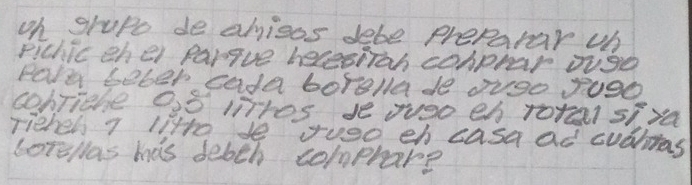 un grupo de amigos debe preparar un
picnic en el parque necesitan comprar jugo
para beber cada botella de jugo jugo
contiene 0,5 litros de jugo en total si ya
tienen 1 litro de jugo en casa ad cuántas
botellas más deben comprar?